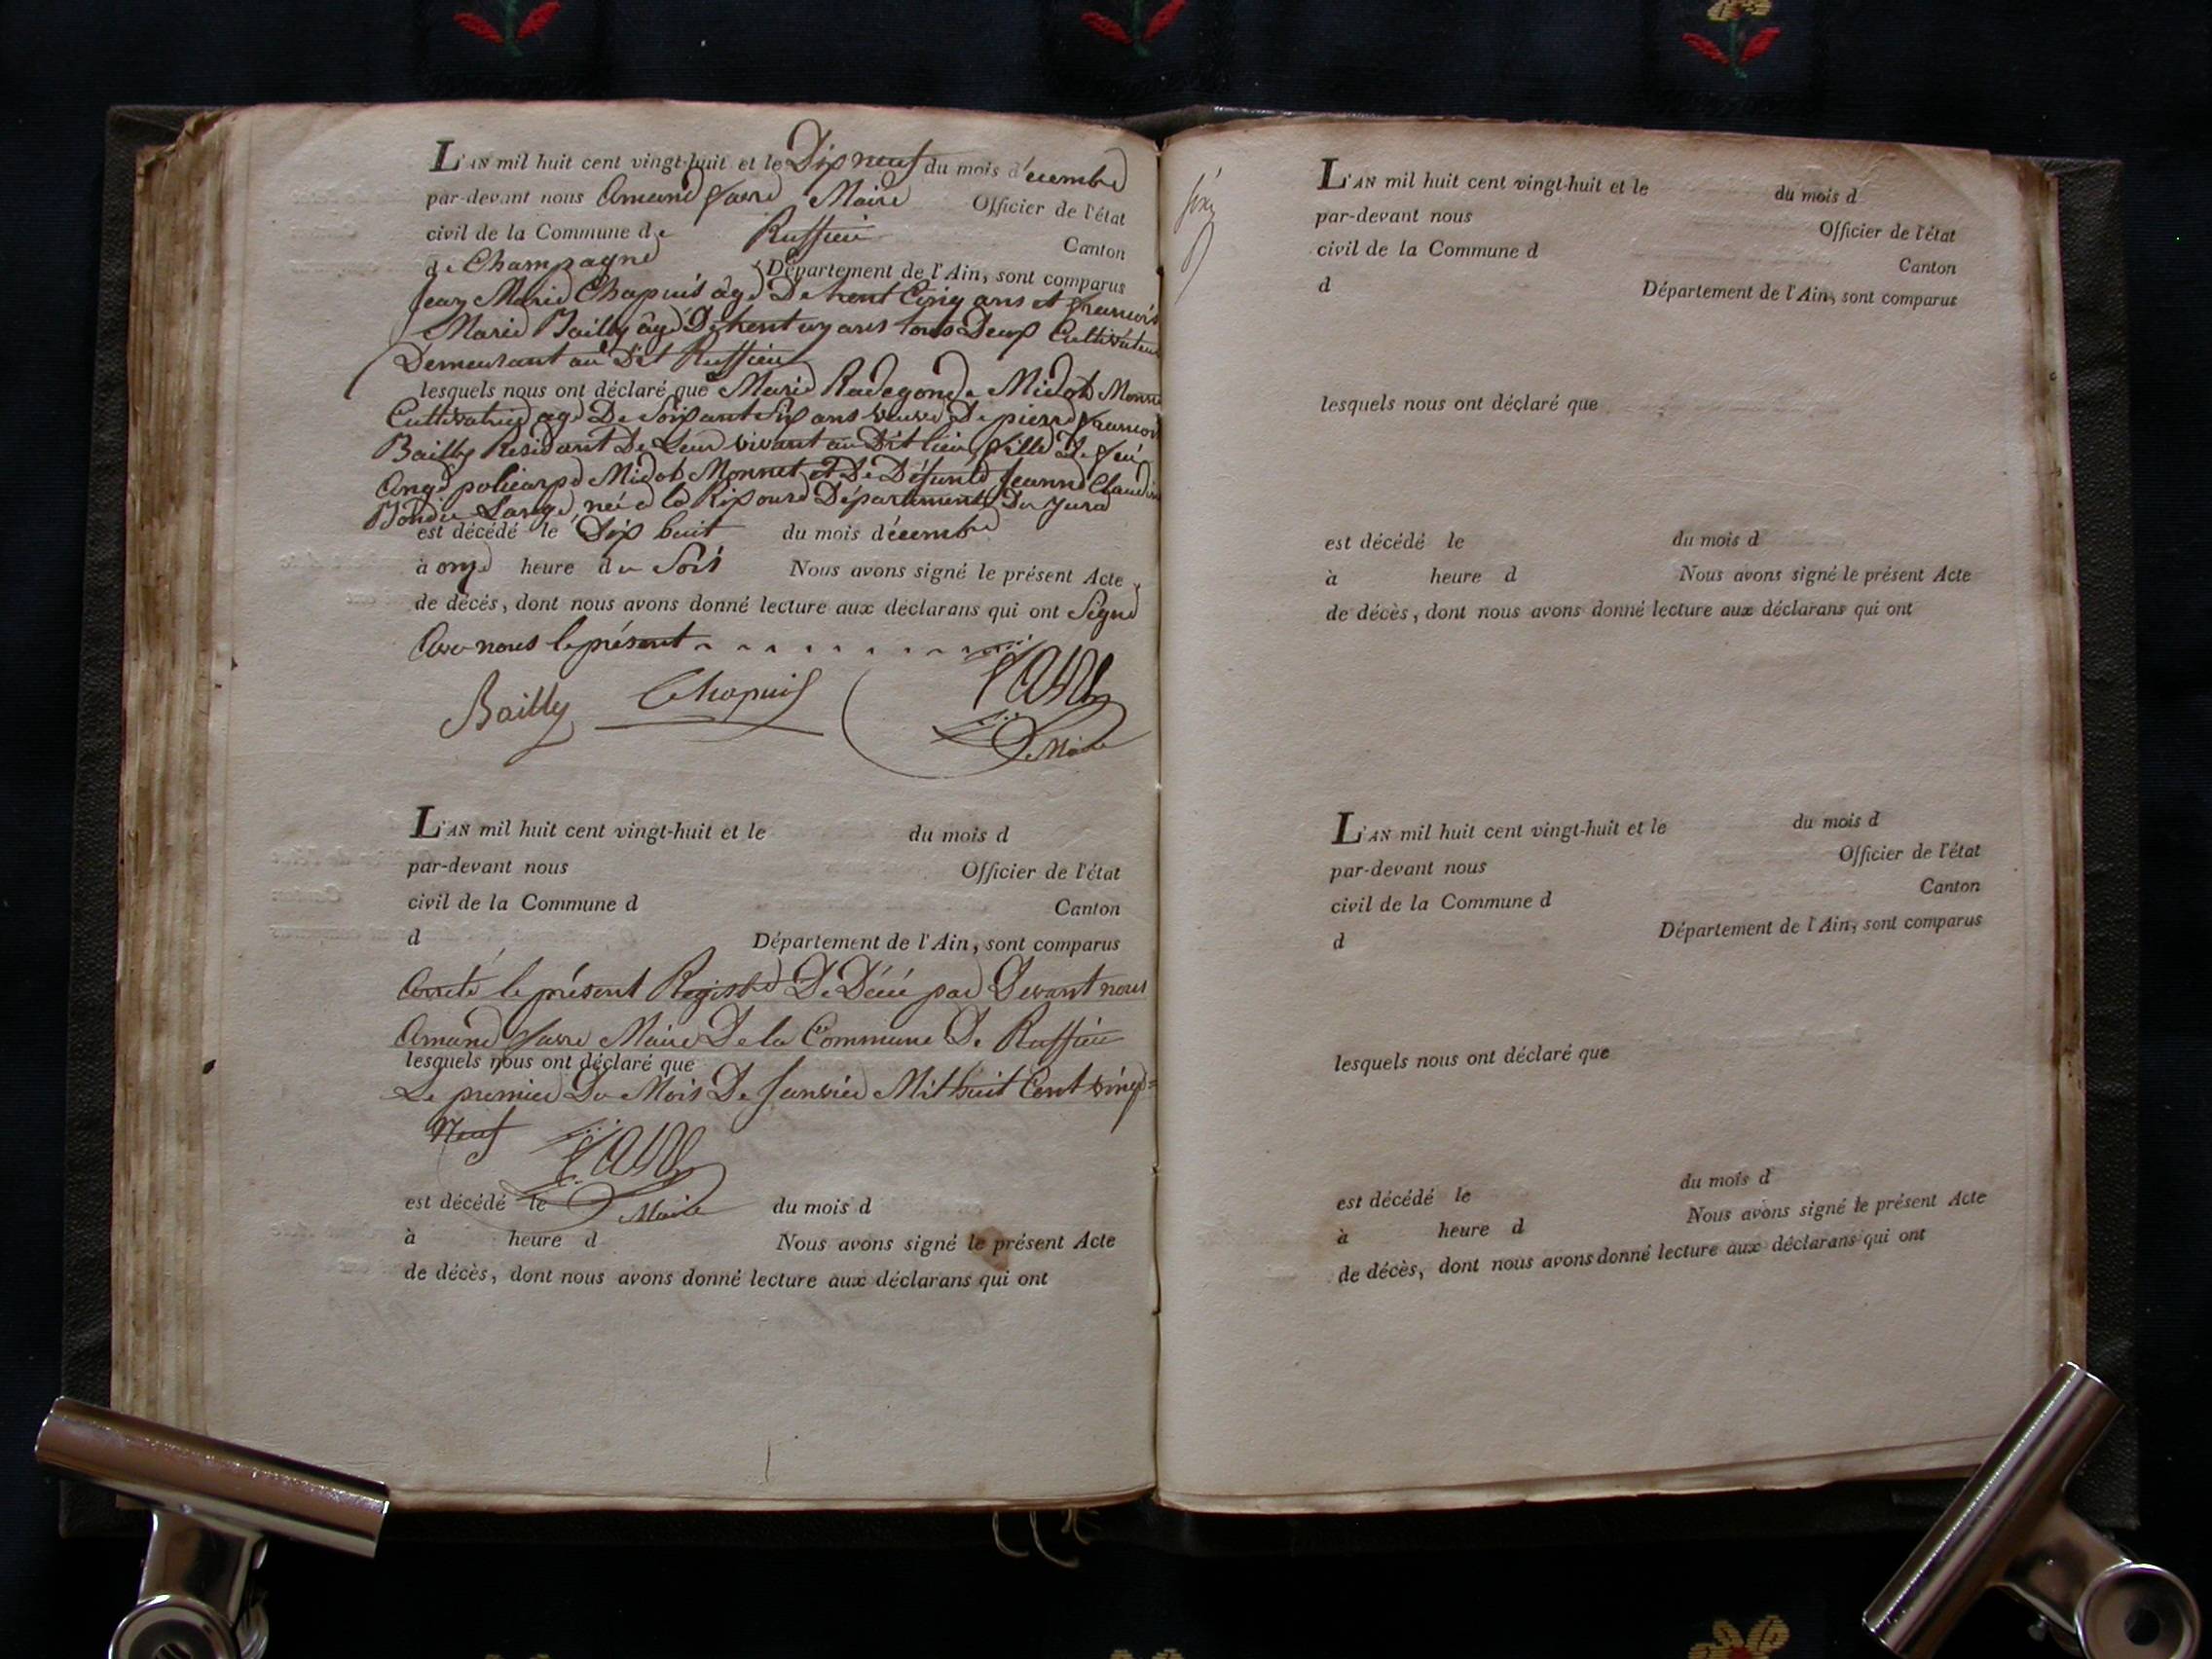 L'AN mil huit cent vingt-huit et le Dix neuf du mois décembre
par-devant nous Amand favre Maire Officier de l'état
civil de la Commune de Ruffieu Canton
de Champagne Département de l'Ain, sont comparus
Jean Marie Chapuis âgé De trent Cinq ans et francois
Marie Bailly âgé De trent un ans touts Deux Cultivateur
Demeurant au Dit Ruffieu
lesquels nous ont déclaré que Marie Radegonde Midot Monnet
Cultivatrice agé De Soixante Six ans veuve De pierre francois
Bailly Residant De Leur vivant au Dit lieu, fille De feu
Ange policarpe Midot Monnet et De Défunte Jeanne Claudine
Lange, née a la Rixouse Département Du Jura
est décédé le Dix huit du mois décembre
à onze heure du Soir Nous avons signé le présent Acte
de décès, dont nous avons donné lecture aux déclarans qui ont Signé
Avec nous le présent
Bailly Chapuis favre
Maire
L'AN mil huit cent vingt-huit et le du mois d
par-devant nous Officier de l'état
civil de la Commune d Canton
d Département de l'Ain, sont comparus
Arreté le présent Registre De Décé par Devant nous
Amand favre Maire De la Commune De Ruffieu
lesquels nous ont déclaré que
Le premier Du Mois De Janvier Mil huit Cent vingt=
Neuf favre
est décédé le Maire du mois d
à heure d Nous avons signé le présent Acte
de décès, dont nous avons donné lecture aux déclarans qui ont
L'AN mil huit cent vingt-huit et le du mois d
par-devant nous Officier de l'état
civil de la Commune d Canton
d Département de l'Ain, sont comparus
lesquels nous ont déclaré que
est décédé le du mois d
à heure d Nous avons signé le présent Acte
de décès, dont nous avons donné lecture aux déclarans qui ont
L'AN mil huit cent vingt-huit et le du mois d
par-devant nous Officier de l'état
civil de la Commune d Canton
d Département de l'Ain, sont comparus
lesquels nous ont déclaré que
est décédé le du mois d
à heure d Nous avons signé le présent Acte
de décès, dont nous avons donné lecture aux déclarans qui ont